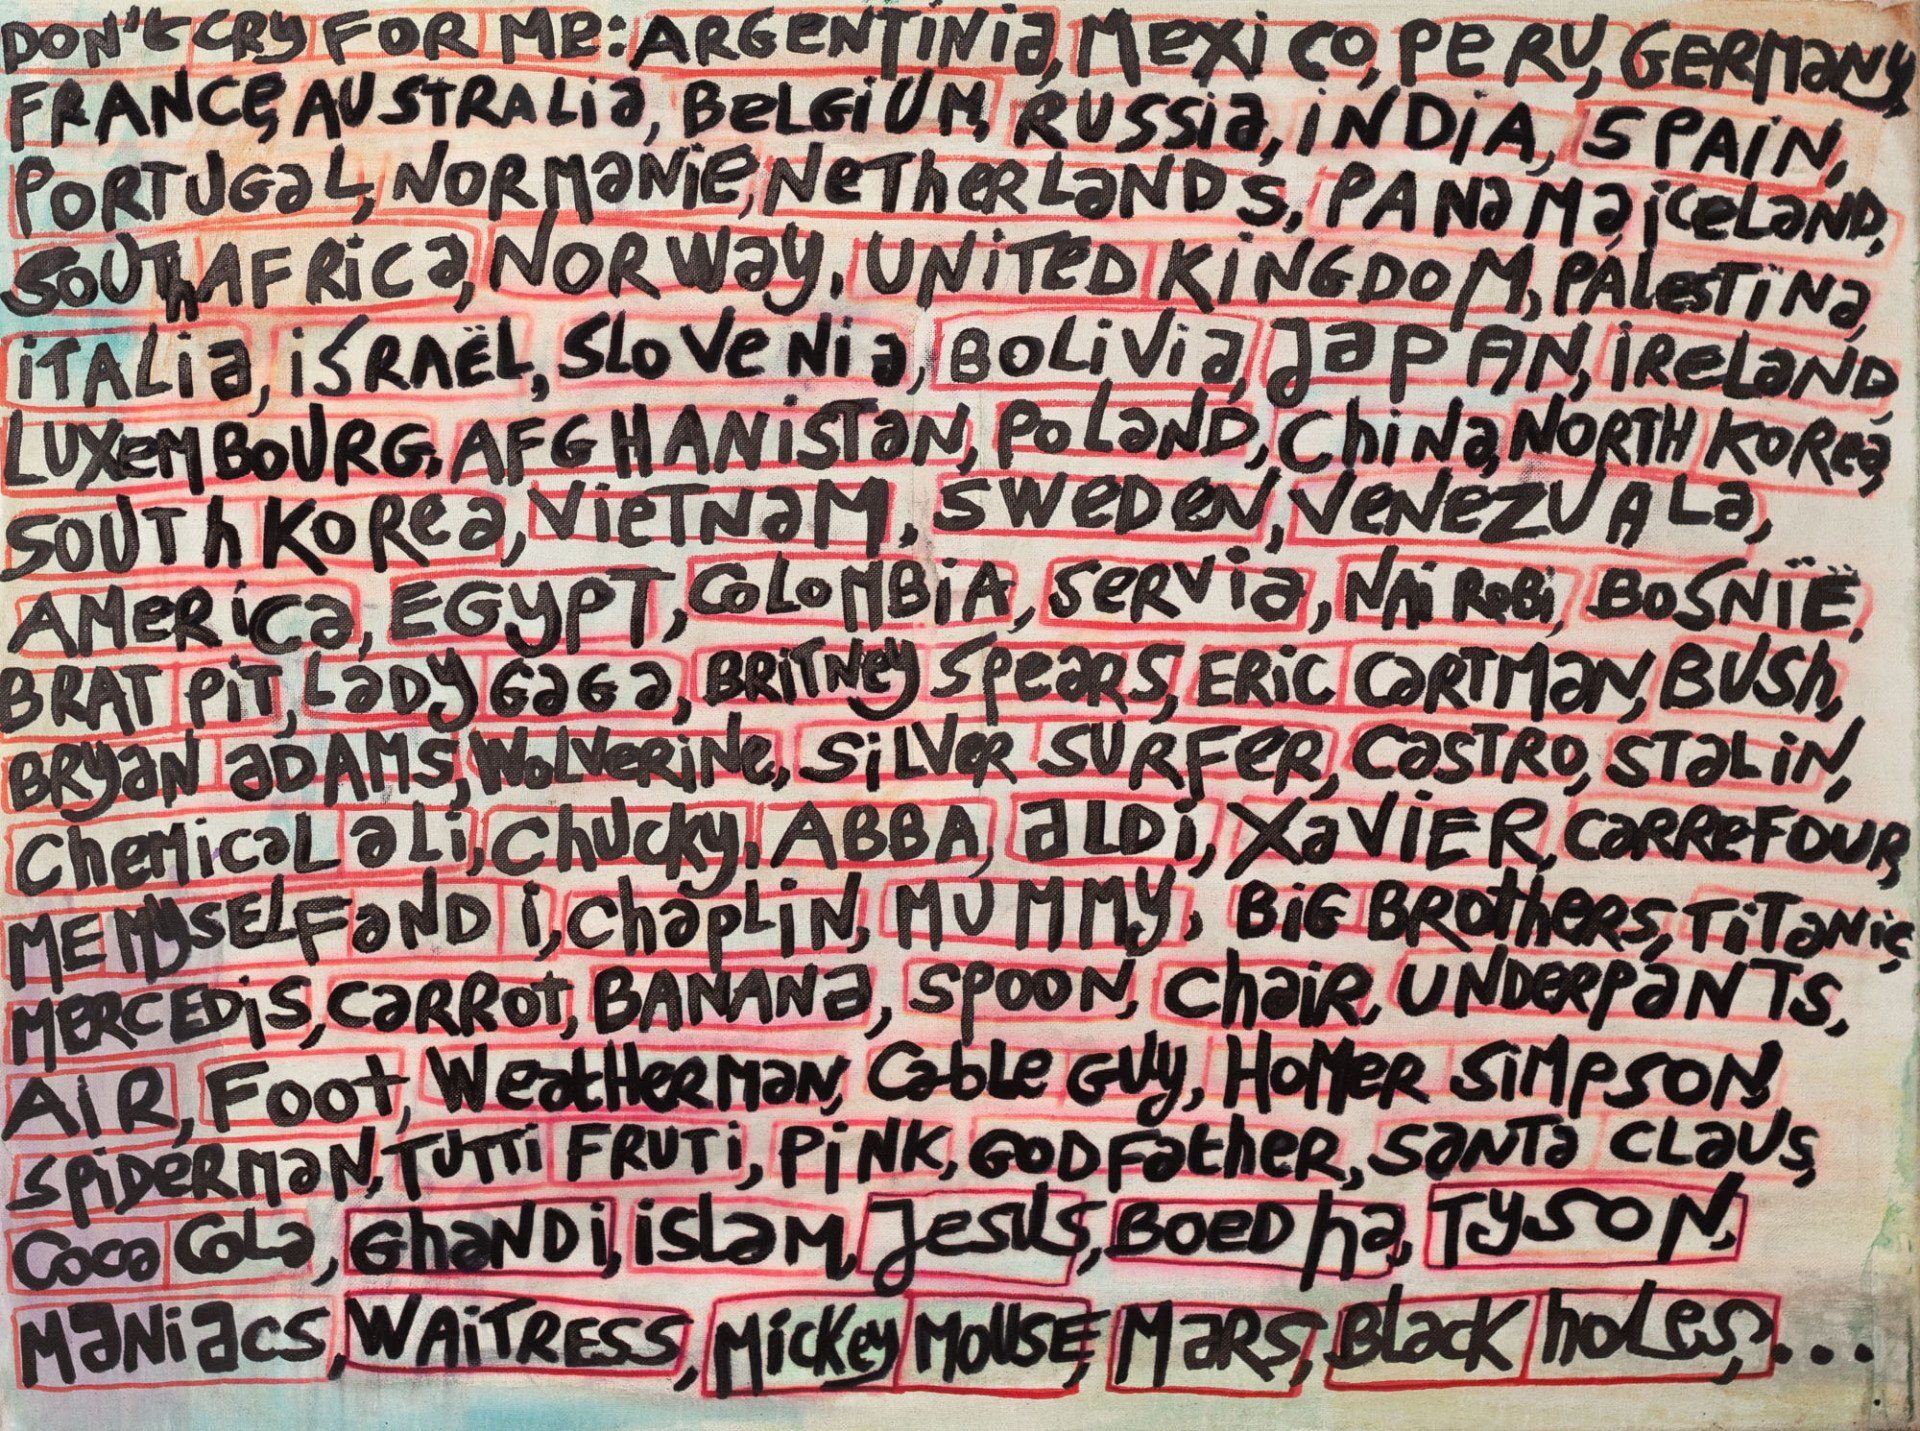 DON't CRY FOR ME: ARGENTINIa, MEXICO, PERU, GERMANY,
FRANCE, AUSTRALIa, BELGIUM, RUSSIa, INDIA, SPAIN,
PORTUGaL, NORMANIE, NETHERLANDS, PANaMa, ICELAND,
SOUTh AFRICa, NORWAY, UNITED KINGDOM, PALESTINa,
ITALIa, ISRAËL, SLOVENIa, BOLIVIa, JAPAN, IRELAND,
LUXEMBOURG, AFGHANISTAN, POLAND, ChINa, NORTH KOREa,
SOUTh KOREa, VIETNAM, SWEDEN, VENEZUALa,
AMERICa, EGYPT, COLOMBIA, SERVIa, NAIROBI, BOSNIË,
BRAT PIT, LADY GAGA, BRITNEY SPEARS, ERIC CARTMAN, BUSh,
BRYAN ADAMS, WOLVERINE, SILVER SURFER, CASTRO, STALIN,
ChEMICAL ALI, ChUCKY, ABBA, ALDI, XAVIER, CARREFOUR,
ME MYSELF AND I, ChAPLIN, MUMMY, BIG BROthERS, TITANIC,
MERCEDIS, CARROt, BANANa, SPOON, ChAIR, UNDERPANTS,
AIR, FOOt, WEAtHERMAN, CABLE GUY, HOMER SIMPSON,
SPIDERMAN, TUTTI FRUTI, PINK, GODFAthER, SANTA CLAUS,
COCA COLA, GhANDI, ISLAM, JESUS, BOEDhA, TYSON,
MANIACS, WAITRESS, MICKEY MOUSE, MARS, BLACK hOLES,...